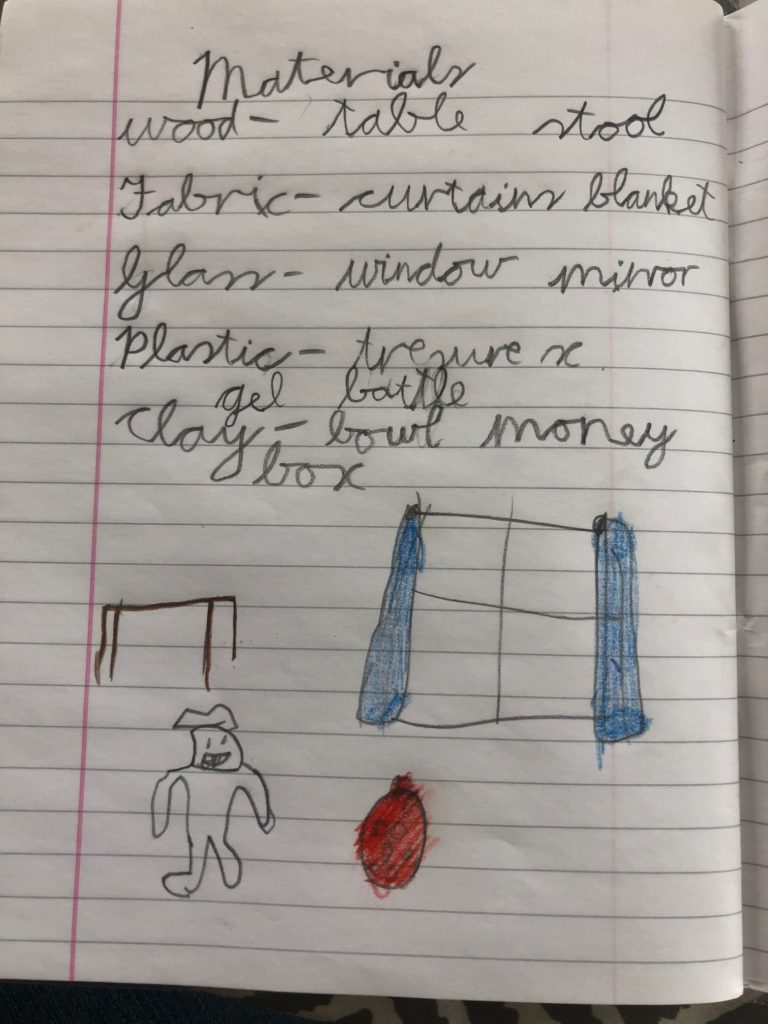 Materials
wood- table stool
Fabric- curtains blanket
Glass- window mirror
Plastic- trezure x
gel battle
Clay- bowl money
box